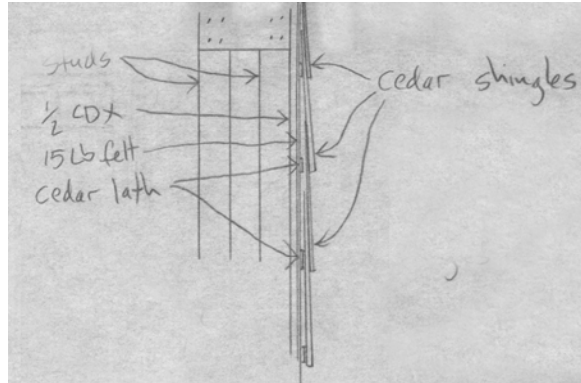 studs
1/2 CDX
15 Lb felt
cedar lath
cedar shingles